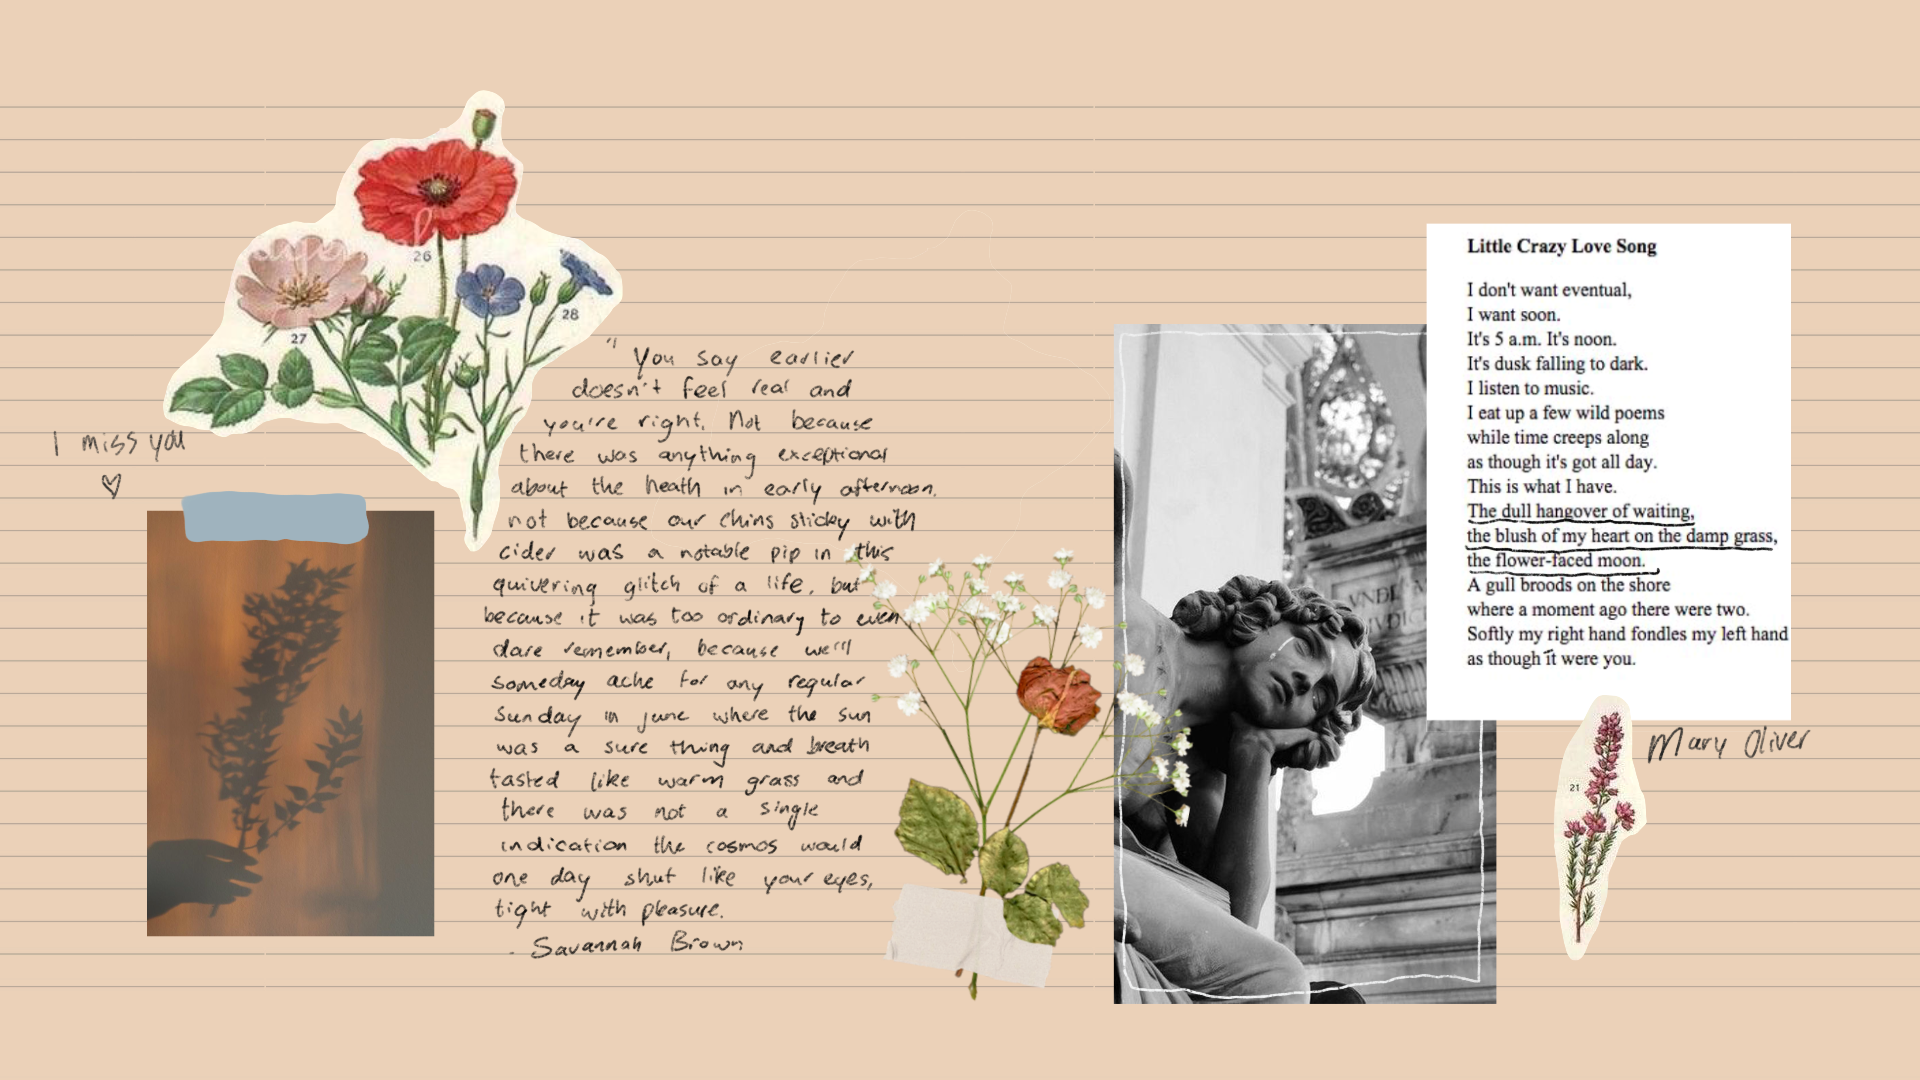 26
27
28
I miss you
♡
" You say earlier
doesn't feel real and
you're right. Not because
there was anything exceptional
about the heath in early afternoon,
not because our chins sticky with
cider was a notable pip in this
quivering glitch of a life, but
because it was too ordinary to even
dare remember, because we'll
someday ache for any regular
Sunday in june where the sun
was a sure thing and breath
tasted like warm grass and
there was not a single
indication the cosmos would
one day shut like your eyes,
tight with pleasure.
- Savannah Brown
Little Crazy Love Song
I don't want eventual,
I want soon.
It's 5 a.m. It's noon.
It's dusk falling to dark.
I listen to music.
I eat up a few wild poems
while time creeps along
as though it's got all day.
This is what I have.
The dull hangover of waiting,
the blush of my heart on the damp grass,
the flower-faced moon.
A gull broods on the shore
where a moment ago there were two.
Softly my right hand fondles my left hand
as though it were you.
Mary Oliver
21